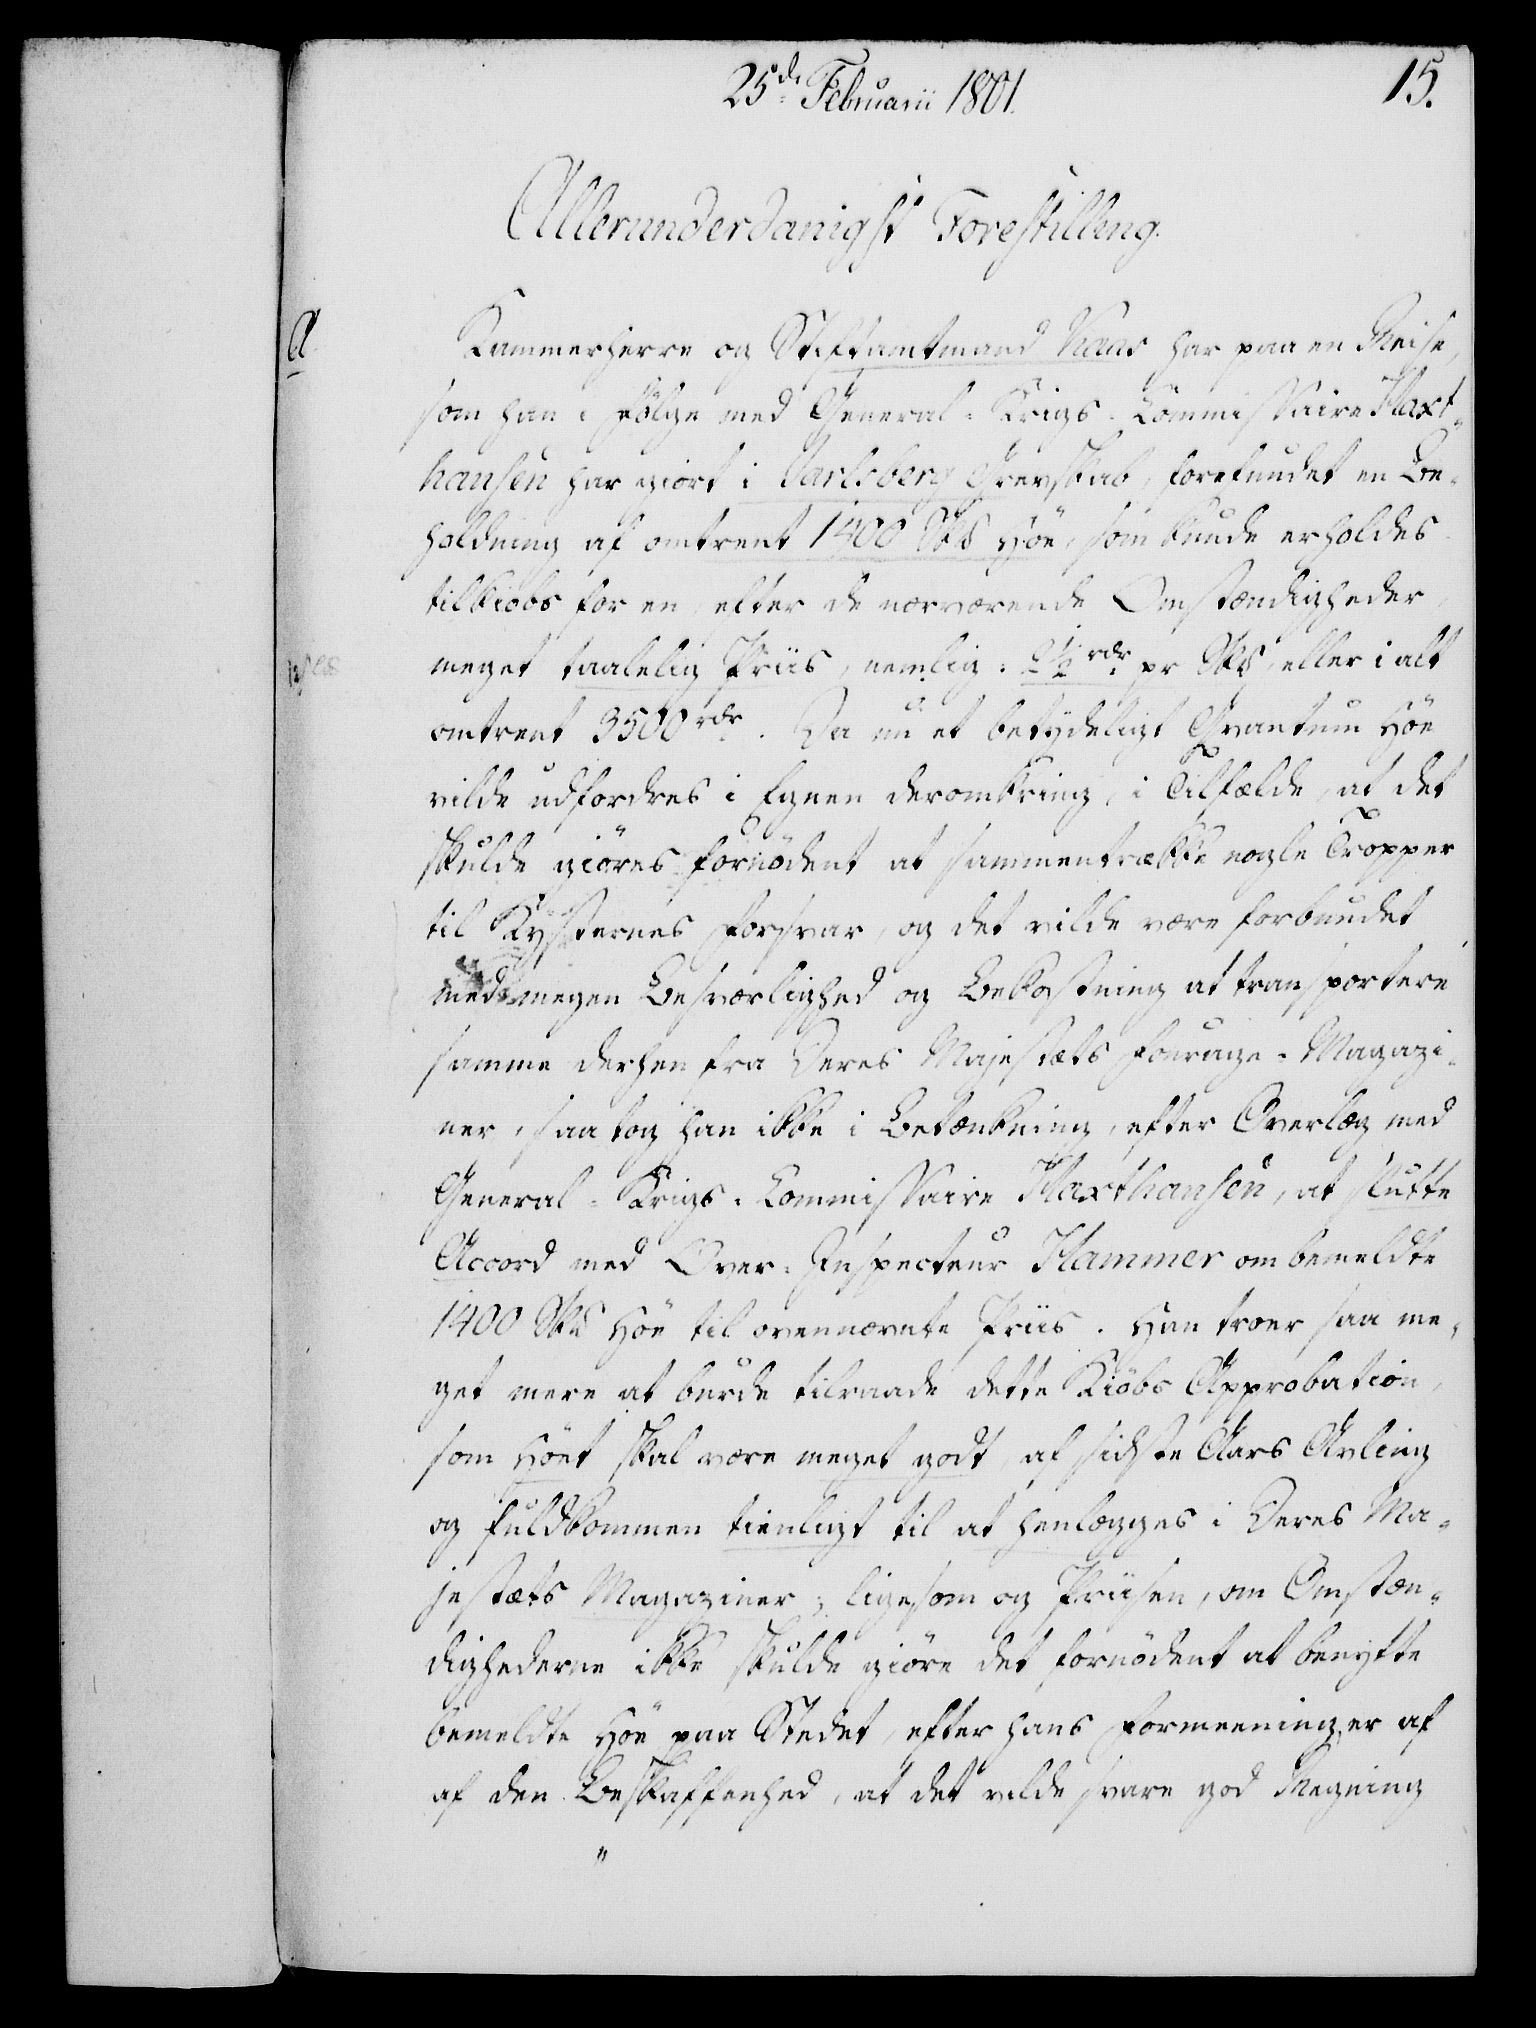 25de Februarii 1801.
15.
Allerunderdanigst Forestilling.
A.
Kammerherre og Stiftamtmand Kaas har paa en Reise,
som han i Følge med General-Krigs-Commissaire Haxt-
hausen har giort i Jarlsberg Grevskab, forefundet en Be-
holdning af omtrent 1400 Skd Høe, som kunde erholdes
tilkiøbs for en, efter de nærværende Omstændigheder,
meget taalelig Priis, nemlig: 2½ rdr. pr Skd, eller i alt
omtrent 3500 rdr. Da nu et betydeligt Qvantum Høe
vilde udfordres i Egnen deromkring, i Tilfælde, at det
skulde giøres fornødent at sammentrække nogle Tropper
til Kysternes Forsvar, og det vilde være forbundet
med megen Besværlighed og Bekostning at transportere
samme derhen fra Deres Majestæts Fourage-Magazi-
ner, saa tog han ikke i Betænkning, efter Overlæg med
General-Krigs-Commissaire Haxthausen, at slutte
Accord med Over-Inspecteur Hammer om bemeldte
1400 Skd Høe til ovennævnte Priis. Han troer saa me-
get mere at burde tilraade dette Kiøbs Approbation,
som Høet skal være meget godt, af sidste Aars Avling
og fuldkommen tienligt til at henlægges i Deres Ma-
jestæts Magaziner; ligesom og Priisen, om Omstæn-
dighederne ikke skulde giøre det fornødent at benytte
bemeldte Høe paa Stedet, efter hans Formeening, er af
af den Beskaffenhed, at det vilde svare god Regning
"